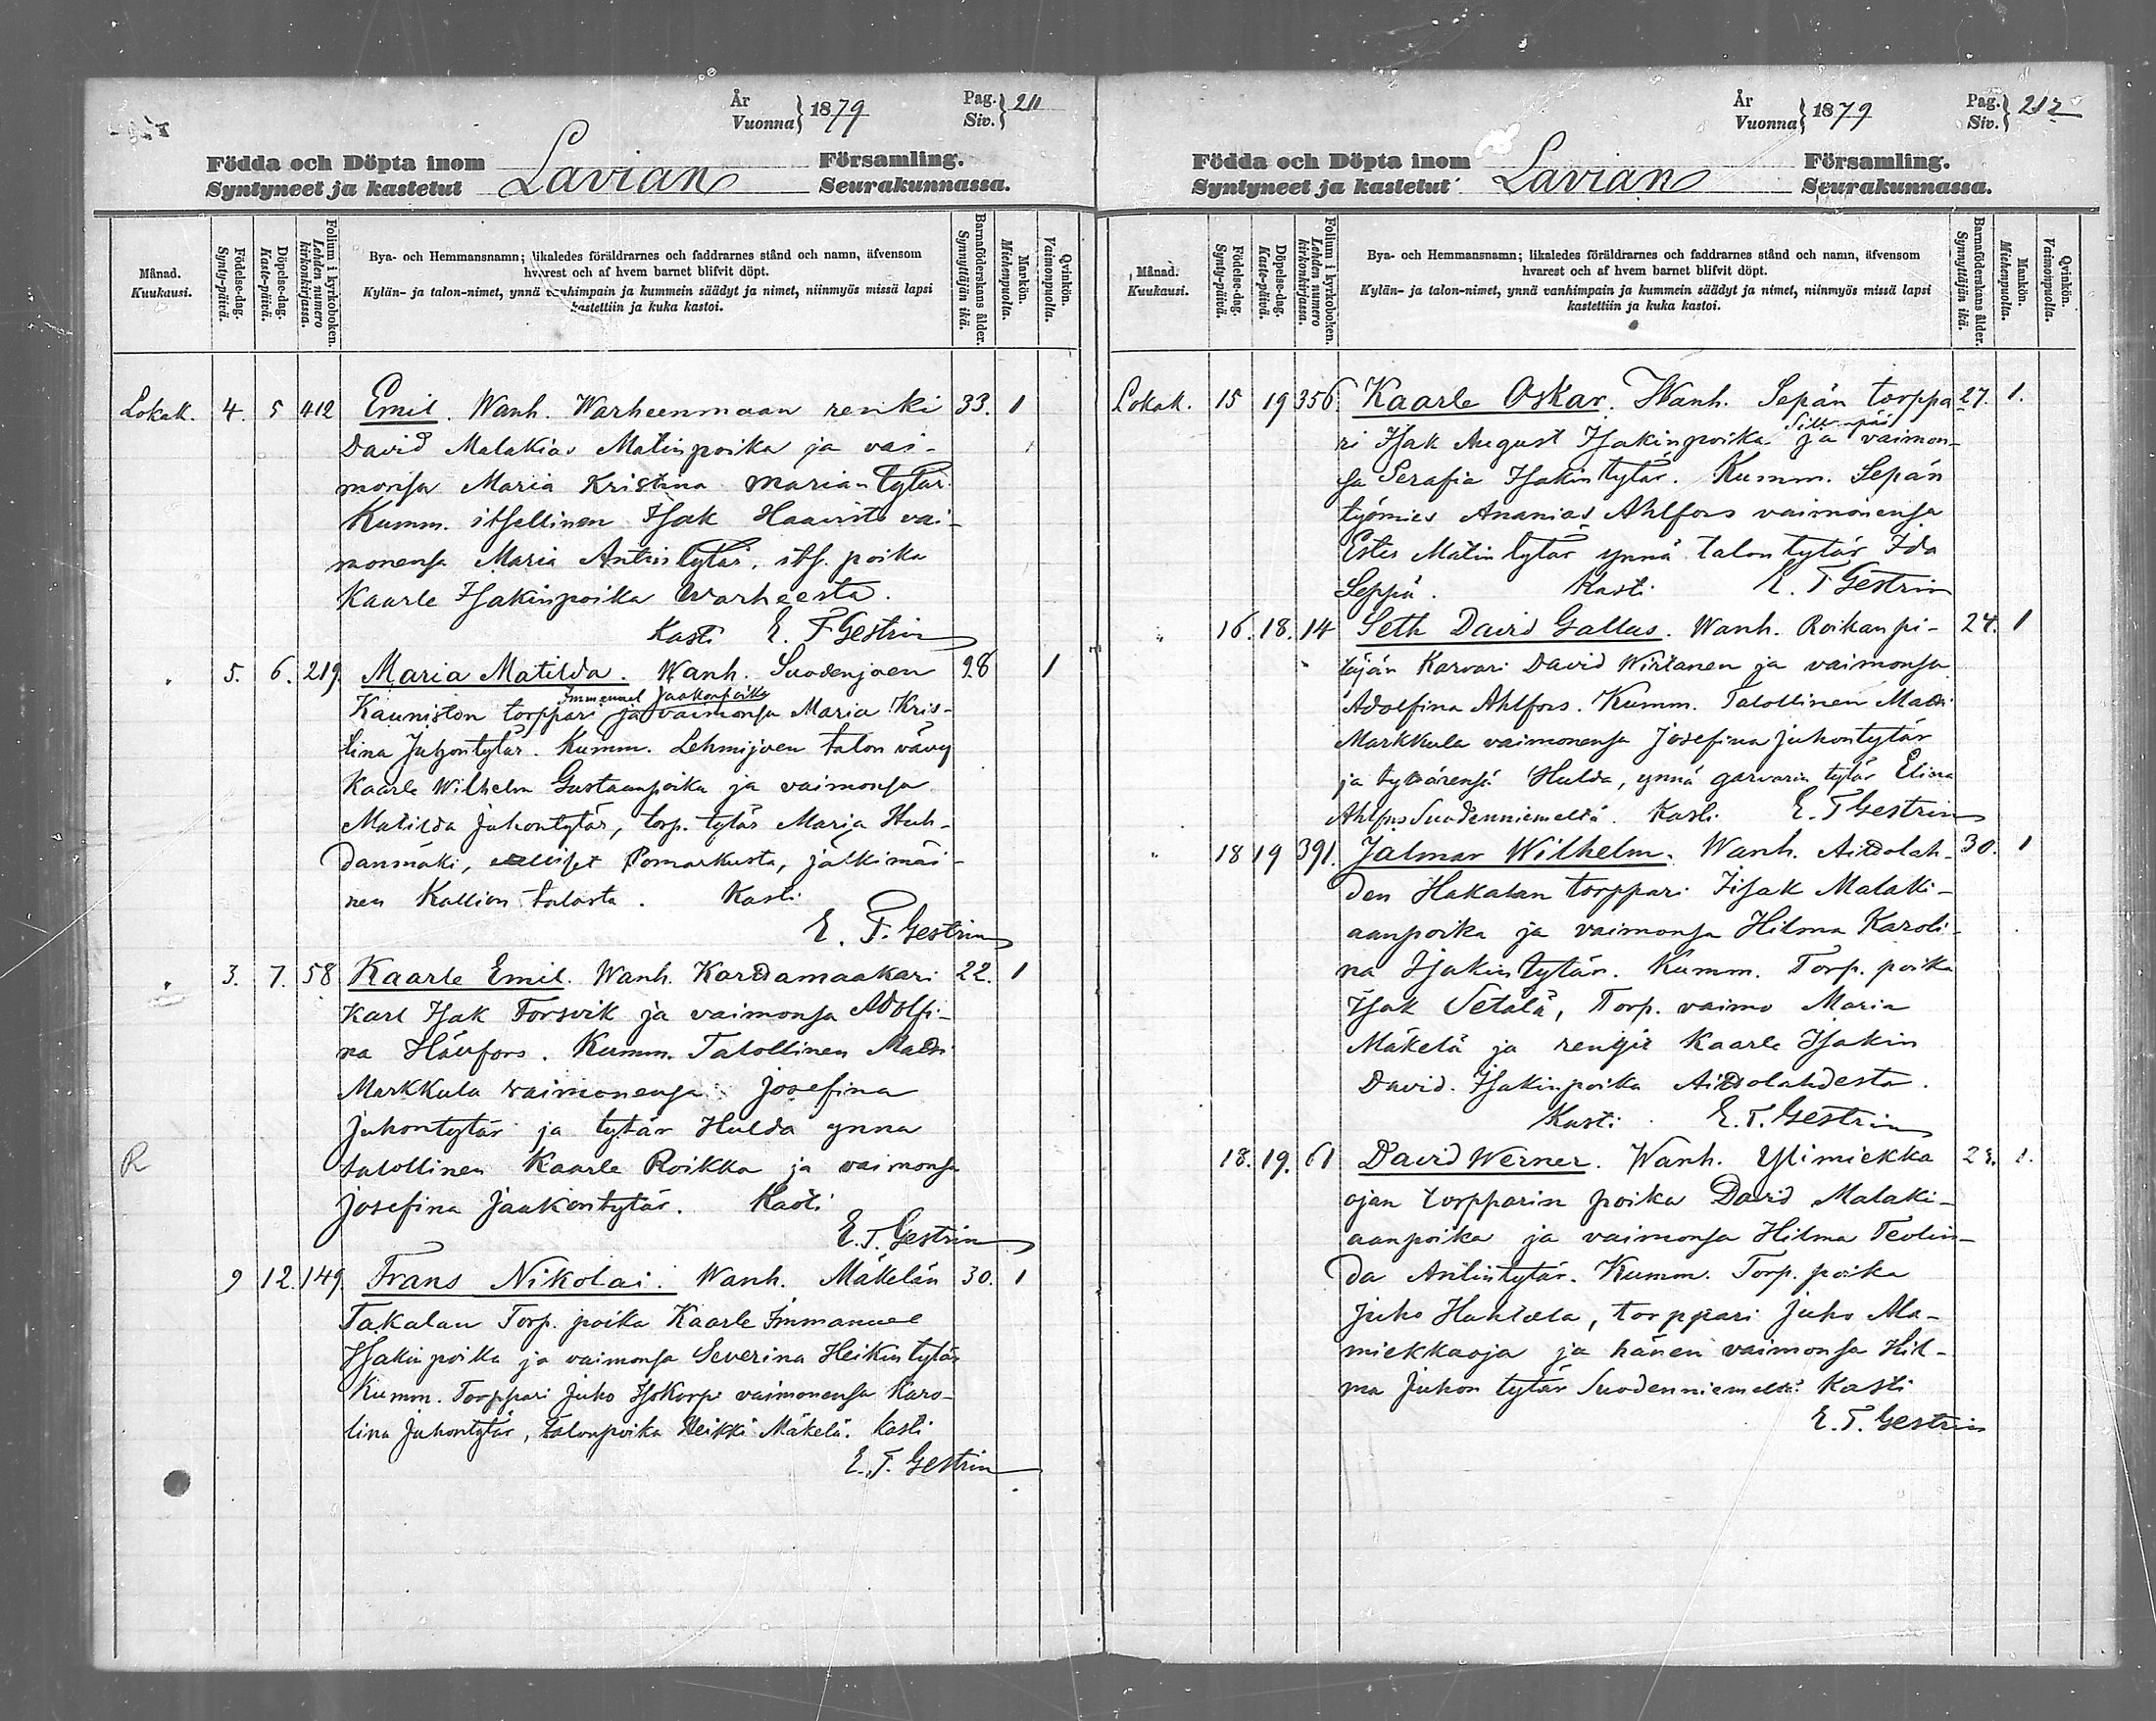 År
Vuonna } 1879
Pag.
Siv. } 211
Födda och Döpta inom
Syntyneet ja kastetut
Lavian
Församling.
Seurakunnassa.
Månad.
Kuukausi.
Födelse-dag.
Synty-päivä.
Döpelse-dag.
Kaste-päivä.
Folium i kyrkoboken.
Lehden numero kirkonkirjassa.
Bya- och Hemmansnamn; likaledes föräldrarnes och faddrarnes stånd och namn, äfvensom
hvarest och af hvem barnet blifvit döpt.
Kylän- ja talon-nimet, ynnä vanhimpain ja kummein säädyt ja nimet, niinmyös missä lapsi
kastettiin ja kuka kastoi.
Barnaföderskans ålder.
Synnyttäjän ikä.
Mankön.
Miehenpuolia.
Qvinkön.
Vaimonpuolia.
Lokak. 4. 5 412 Emil. Wanh. Warheenmaan renki 33. 1
David Malakias Matinpoika ja vai-
monsa Maria Kristina Mariantytär.
Kumm. itsellinen Isak Haavisto vai-
monensa Maria Antintytär, its. poika
Kaarle Isakinpoika Warheesta.
Kasti E. F Gestrin
" 5. 6. 219. Maria Matilda. Wanh. Suodenjoen 28 1
Immanuel Jaakonpoika
Kauniston torppari ja vaimonsa Maria Kris-
tina Juhontytär. Kumm. Lehmijoen talon vävy
Kaarle Wilhelm Gustaanpoika ja vaimonsa
Matilda Juhontytär, torp. tytär Maria Huh-
danmäki, edelliset Pomarkusta, jälkimäi-
nen Kallion talosta. Kasti
E. F. Gestrin
" 3. 7. 58 Kaarle Emil. Wanh. Karddamaakari 22. 1
Karl Isak Forsvik ja vaimonsa Adolfi-
na Kumm. Talollinen Matti
Markkula vaimonensa Josefina
Juhontytär ja tytär Hulda ynna
R
talollinen Kaarle Roikka ja vaimonsa
Josefina Jaakontytär. Kasti
E. F. Gestrin
9 12. 149. Frans Nikolai. Wanh. Mäkelän 30. 1
Takalan Torp. poika Kaarle Immanuel
Isakinpoika ja vaimonsa Severina Heikintytär
Kumm. Torppari Juho Isokorpi vaimonensa Karo-
lina Juhontytär, Talonpoika Heikki Mäkelä. Kasti
E. F. Gestrin
År
Vuonna } 1879
Pag.
Siv. } 212
Födda och Döpta inom
Syntyneet ja kastetut
Lavian
Församling.
Seurakunnassa.
Månad.
Kuukausi.
Födelse-dag.
Synty-päivä.
Döpelse-dag.
Kaste-päivä.
Folium i kyrkoboken.
Lehden numero kirkonkirjassa.
Bya- och Hemmansnamn; likaledes föräldrarnes och faddrarnes stånd och namn, äfvensom
hvarest och af hvem barnet blifvit döpt.
Kylän- ja talon-nimet, ynnä vanhimpain ja kummein säädyt ja nimet, niinmyös missä lapsi
kastettiin ja kuka kastoi.
Barnaföderskans ålder.
Synnyttäjän ikä.
Mankön.
Miehenpuolia.
Qvinkön.
Vaimonpuolia.
Lokak. 15 19 356. Kaarle Oskar. Wanh. Sepän torppa 27. 1.
ri Isak August Isakinpoika ja vaimon-
sa Serafia Isakintytär. Kumm. Sepän
työmies Ananias Ahlfors vaimonensa
Ester Matintytär ynnä talontytär Ida
Seppä. Kasti E. F Gestrin
" 16. 18. 14 Seth David Gallus. Wanh. Roikanpi- 24. 1
täjän Karvari David Wirtanen ja vaimonsa
Adolfina Ahlfors. Kumm. Talollinen Matti
Markkula vaimonensa Josefina Juhontytär
ja tytärensä Hulda, ynnä garvarin tytär Elina
Ahlfors Suodenniemeltä. Kasti E. F Gestrin
" 18 19 391. Jalmar Wilhelm. Wanh. Aittolah- 30. 1
den Hakalan torppari Iisak Malaki-
aanpoika ja vaimonsa Hilma Karoli-
na Isakintytär. Kumm. Torp. poika
Isak Setälä, Torp. vaimo Maria
Mäkelä ja rengit Kaarle Isakin
David Isakinpoika Aittolahdesta.
Kasti E. F. Gestrin
18. 19. 61 David Werner. Wanh. Ylimiekka 1.
ojan torpparin poika David Malaki-
aanpoika ja vaimonsa Hilma Teolin-
da Antintytär. Kumm. Torp. poika
Juho torppari Juho Ala-
miekkaoja ja hänen vaimonsa Hil-
ma Juhon tytär Suodenniemeltä. Kasti
E. F. Gestrin